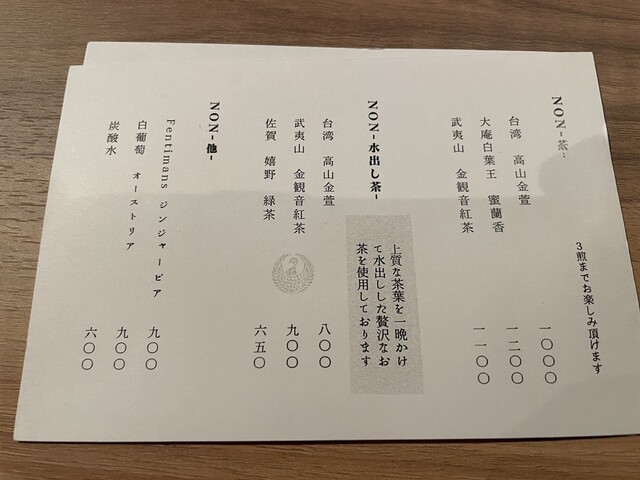 NON-茶:
3煎までお楽しみ頂けます
台湾 高山金萱 一〇〇〇
大庵白葉王 蜜蘭香 一二〇〇
武夷山 金観音紅茶 一一〇〇
NON-水出し茶-
上質な茶葉を一晩かけ
て水出しした贅沢なお
茶を使用しております
台湾 高山金萱 八〇〇
武夷山 金観音紅茶 九〇〇
佐賀 嬉野 緑茶 六五〇
NON-他-
Fentimans ジンジャービア 九〇〇
白葡萄 オーストリア 九〇〇
炭酸水 六〇〇